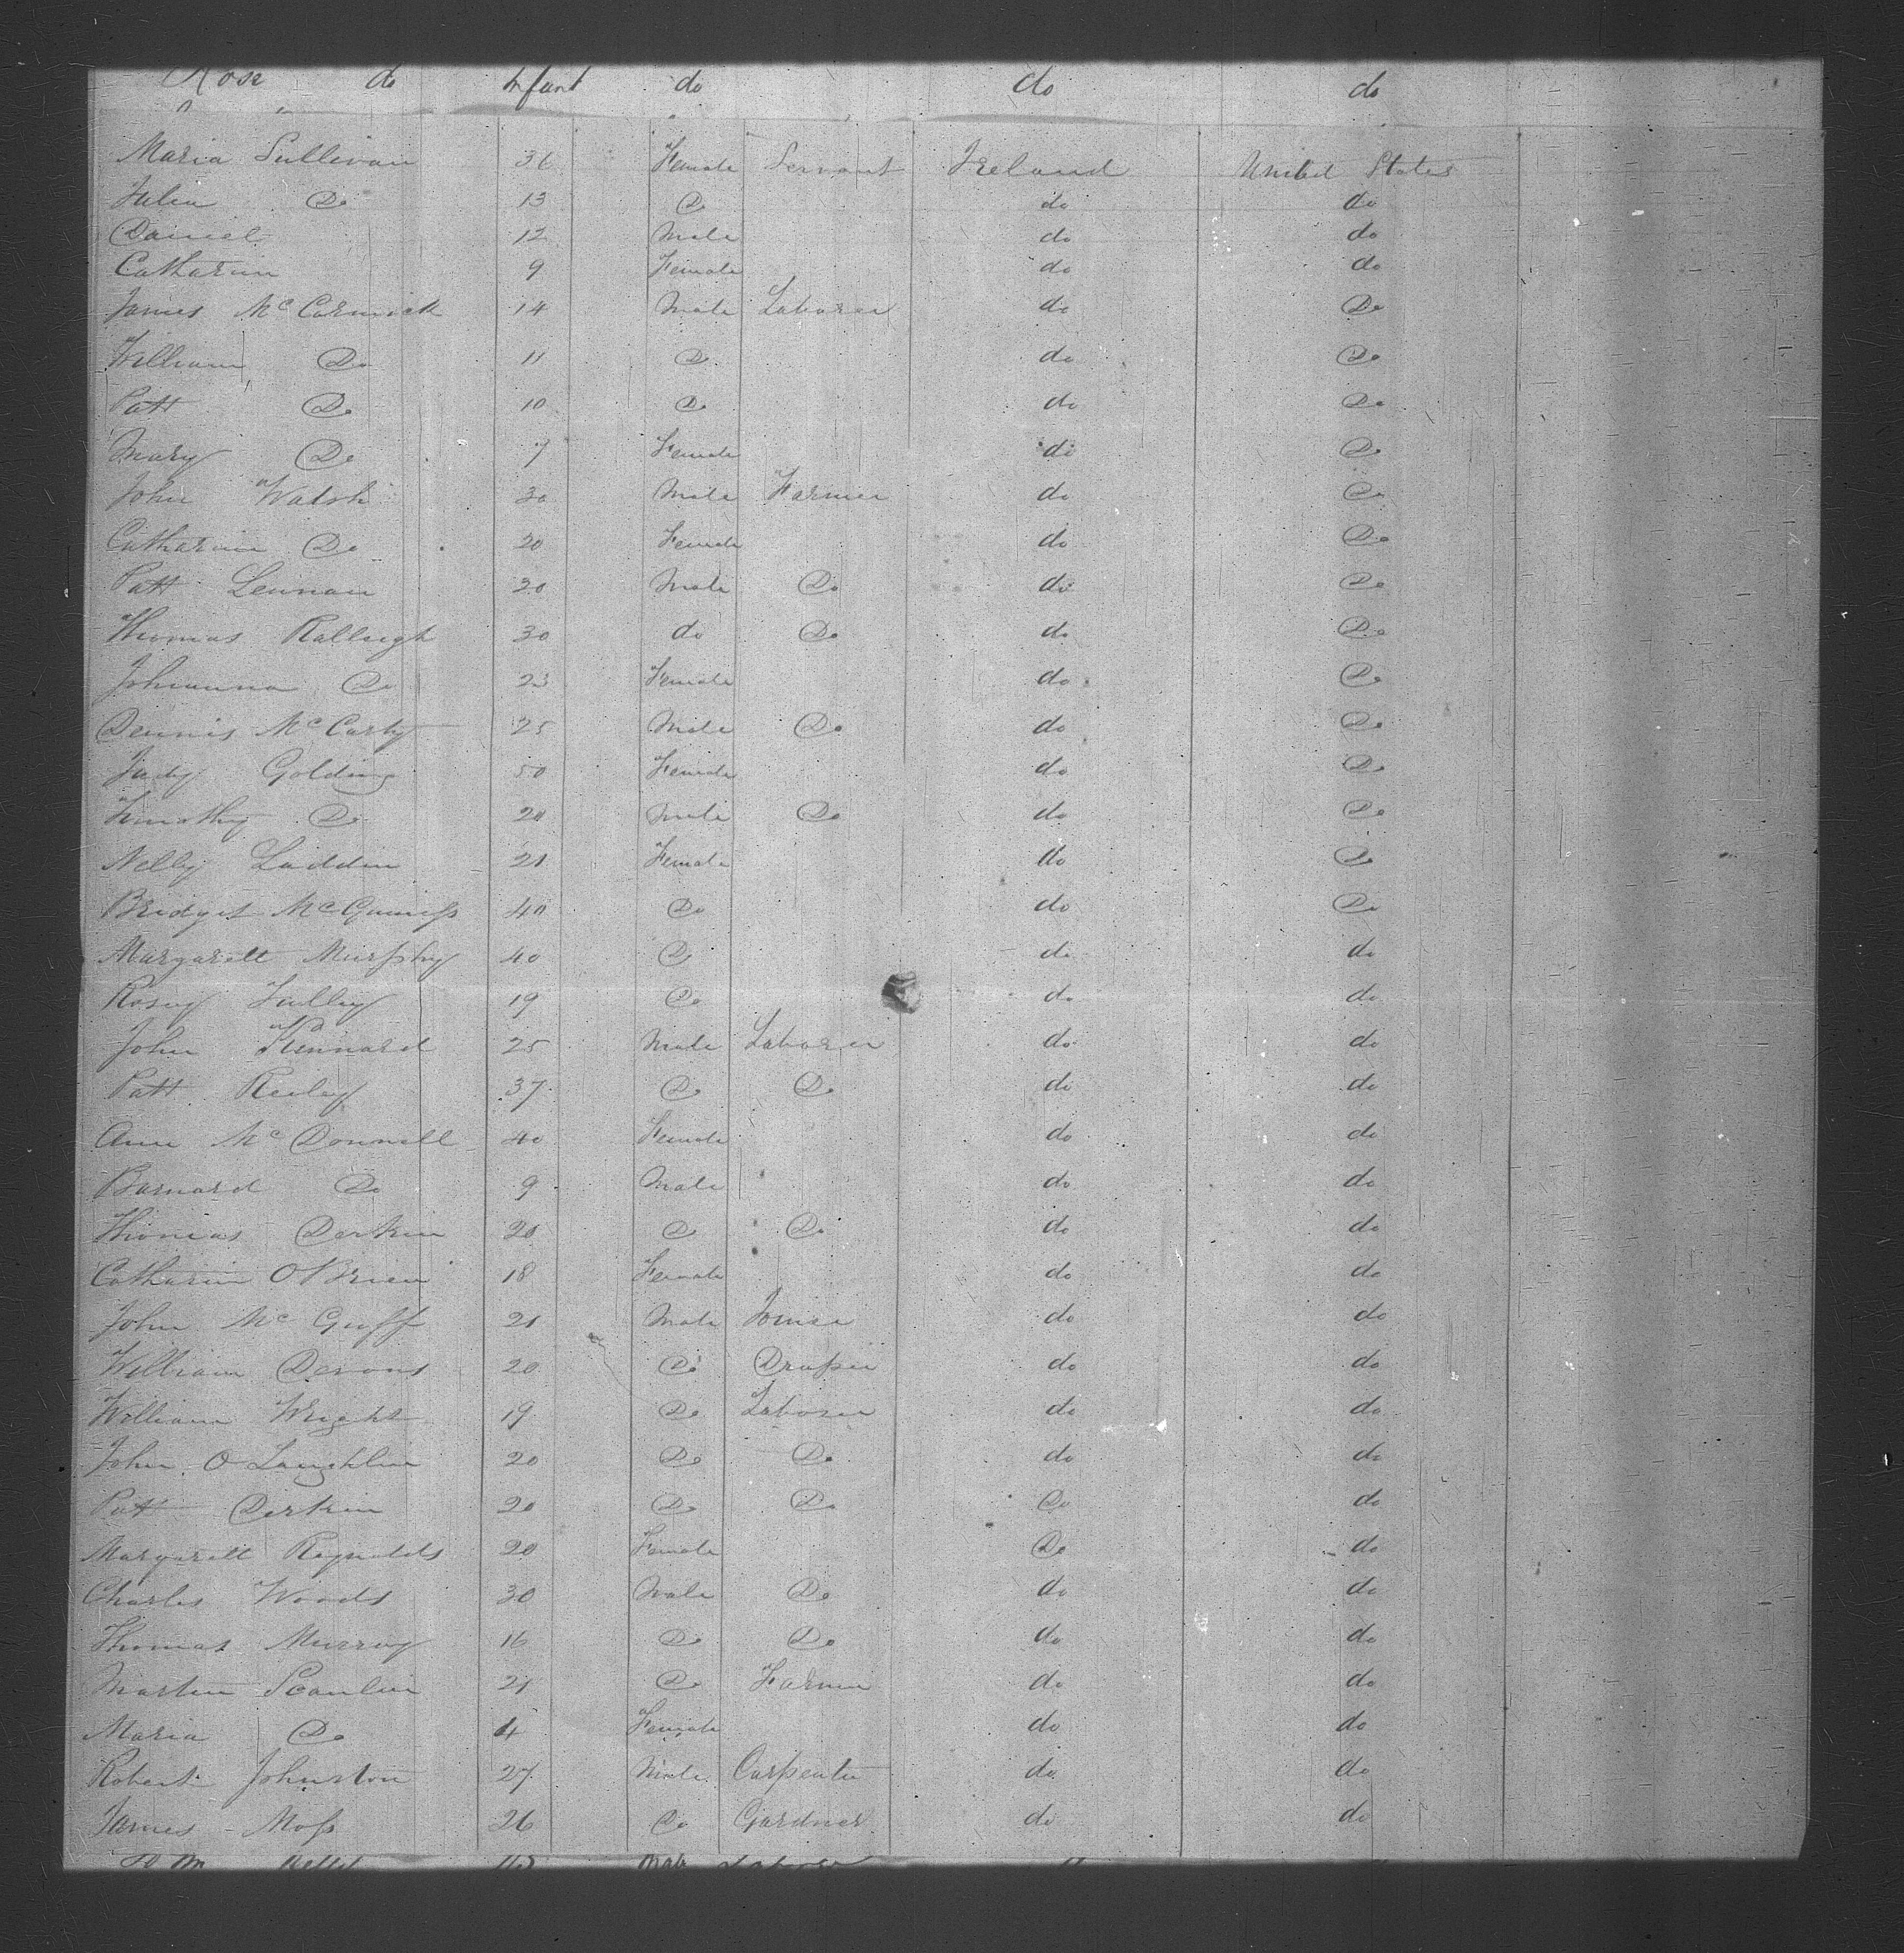 Rose do Infant do do do
Maria Sullivan 36 Female Servant Ireland United States
Helen Do 13 Do do do
Daniel 12 Male do do
Catharin 9 Female do do
James McCormick 14 Male Laborer do Do
William Do 11 Do do Do
Patt Do 10 Do do Do
Mary Do 7 Female do Do
John Walsh 30 Male Farmer do Do
Catharine Do 20 Female do Do
Patt Lennan 20 Male Do do Do
Thomas Ralleigh 30 do Do do Do
Johanna Do 23 Female do Do
Dennis McCarty 25 Male Do do Do
Judy Golding 50 Female do Do
Timothy Do 20 Male Do do Do
Nelly Laddin 21 Female do Do
Bridget McGuiniss 40 Do do Do
Margarett Murphy 40 Do do do
Rosey 19 Do do do
John Kinnard 25 Male Laborer do do
Patt Reiley 37 Do Do do do
Ann McDonnell 40 Female do do
Barnard Do 9 Male do do
Thomas Derkin 20 Do Do do do
Catharin O'Brien 18 Female do do
John McGuff 21 Male do do
William Devons 20 Do Draper do do
William Wright 19 Do Laborer do do
John O Laughlin 20 Do Do do do
Patt Derkin 20 Do Do Do do
Margarett Reynolds 20 Female Do do
Charles Woods 30 Male Do do do
Thomas Murray 16 Do Do do do
Martin Scanlin 21 Do Farmer do do
Maria Do 4 Female do do
Robert Johnston 27 Male Carpenter do do
James Moss 26 Do Gardner do do
Male Laborer